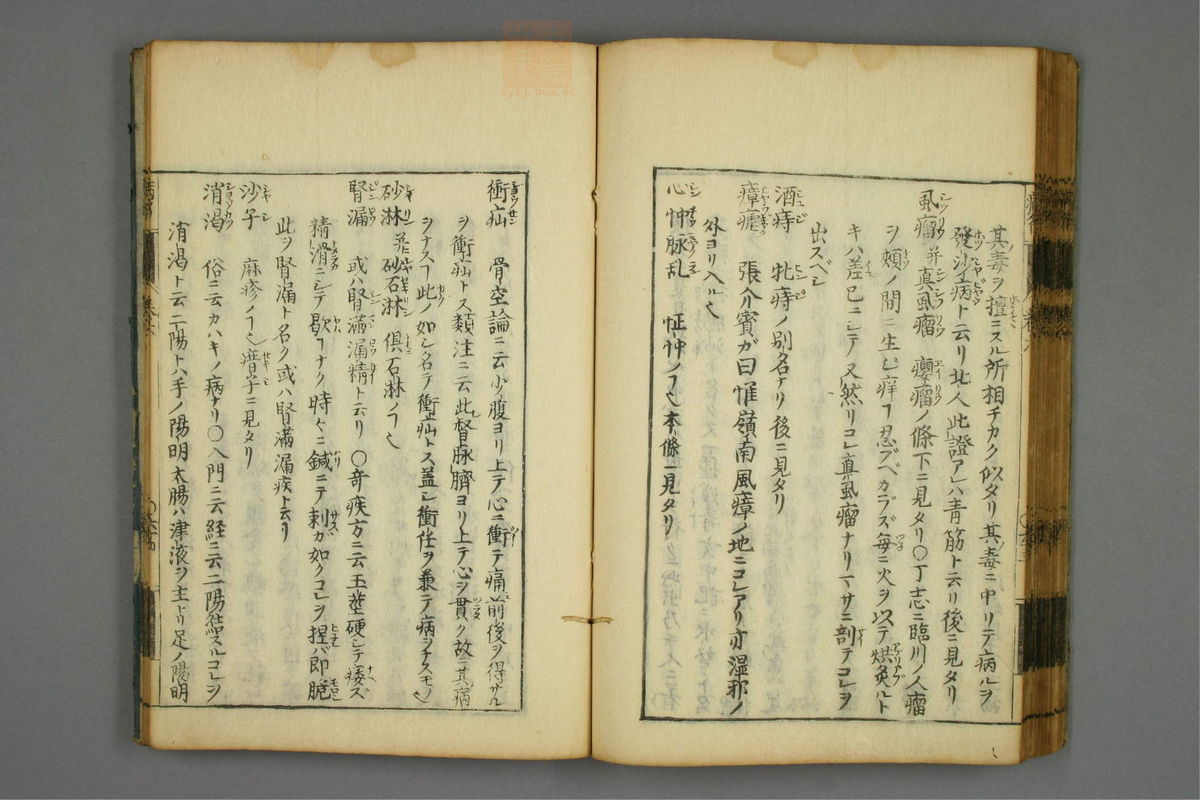 其毒ヲ擅ニスル所相チカク似タリ其毒ニ中リテ病ルヲ
發沙病ト云リ北人此證アレハ青筋ト云リ後ニ見タリ
風瘤 并真風瘤 癭瘤ノ條下ニ見タリ〇丁志ニ臨川ノ人瘤
ヲ頬ノ間ニ生じ痒ヿ忍ブベカラズ毎ニ火ヲ以テ烘灸ルト
キハ差已ニシテ又然リコレ真風瘤ナリマサニ剖テコレヲ
出スベシ
酒痔 牝痔ノ別名ナリ後ニ見タリ
瘴瘧 張介賓ガ曰惟嶺南風瘴ノ地ニコレアリ亦湿邪ノ
外ヨリ入ル
心忡脉乱 怔忡ノ 本條ニ見タリ
衝疝 骨空論ニ云少腹ヨリ上テ心ニ衝テ痛前後ヲ得ザル
ヲ衝疝トス類注ニ云此督脉臍ヨリ上テ心ヲ貫ク故ニ其病
ヲナスヿ此ノ如シ名テ衝疝トス蓋シ衝任ヲ兼テ病ヲナスモノ
砂淋 并ニ砂石淋 倶石淋ノ
腎漏 或ハ腎満漏精ト云リ 〇奇疾方ニ云玉莖硬シテ痿ズ
精滑ニシテ歇ヿナク時々ニ鍼ニテ刺カ如クコレヲ捏バ即脆
此ヲ腎漏ト名ク或ハ腎満漏疾ト云リ
沙子 麻疹ノ 瘄子ニ見タリ
消渇 俗ニ云カハキノ病ナリ〇入門ニ云経ニ云二陽結スルコレヲ
消渇ト云二陽トハ手ノ陽明大腸ハ津液ヲ主トリ足ノ陽明